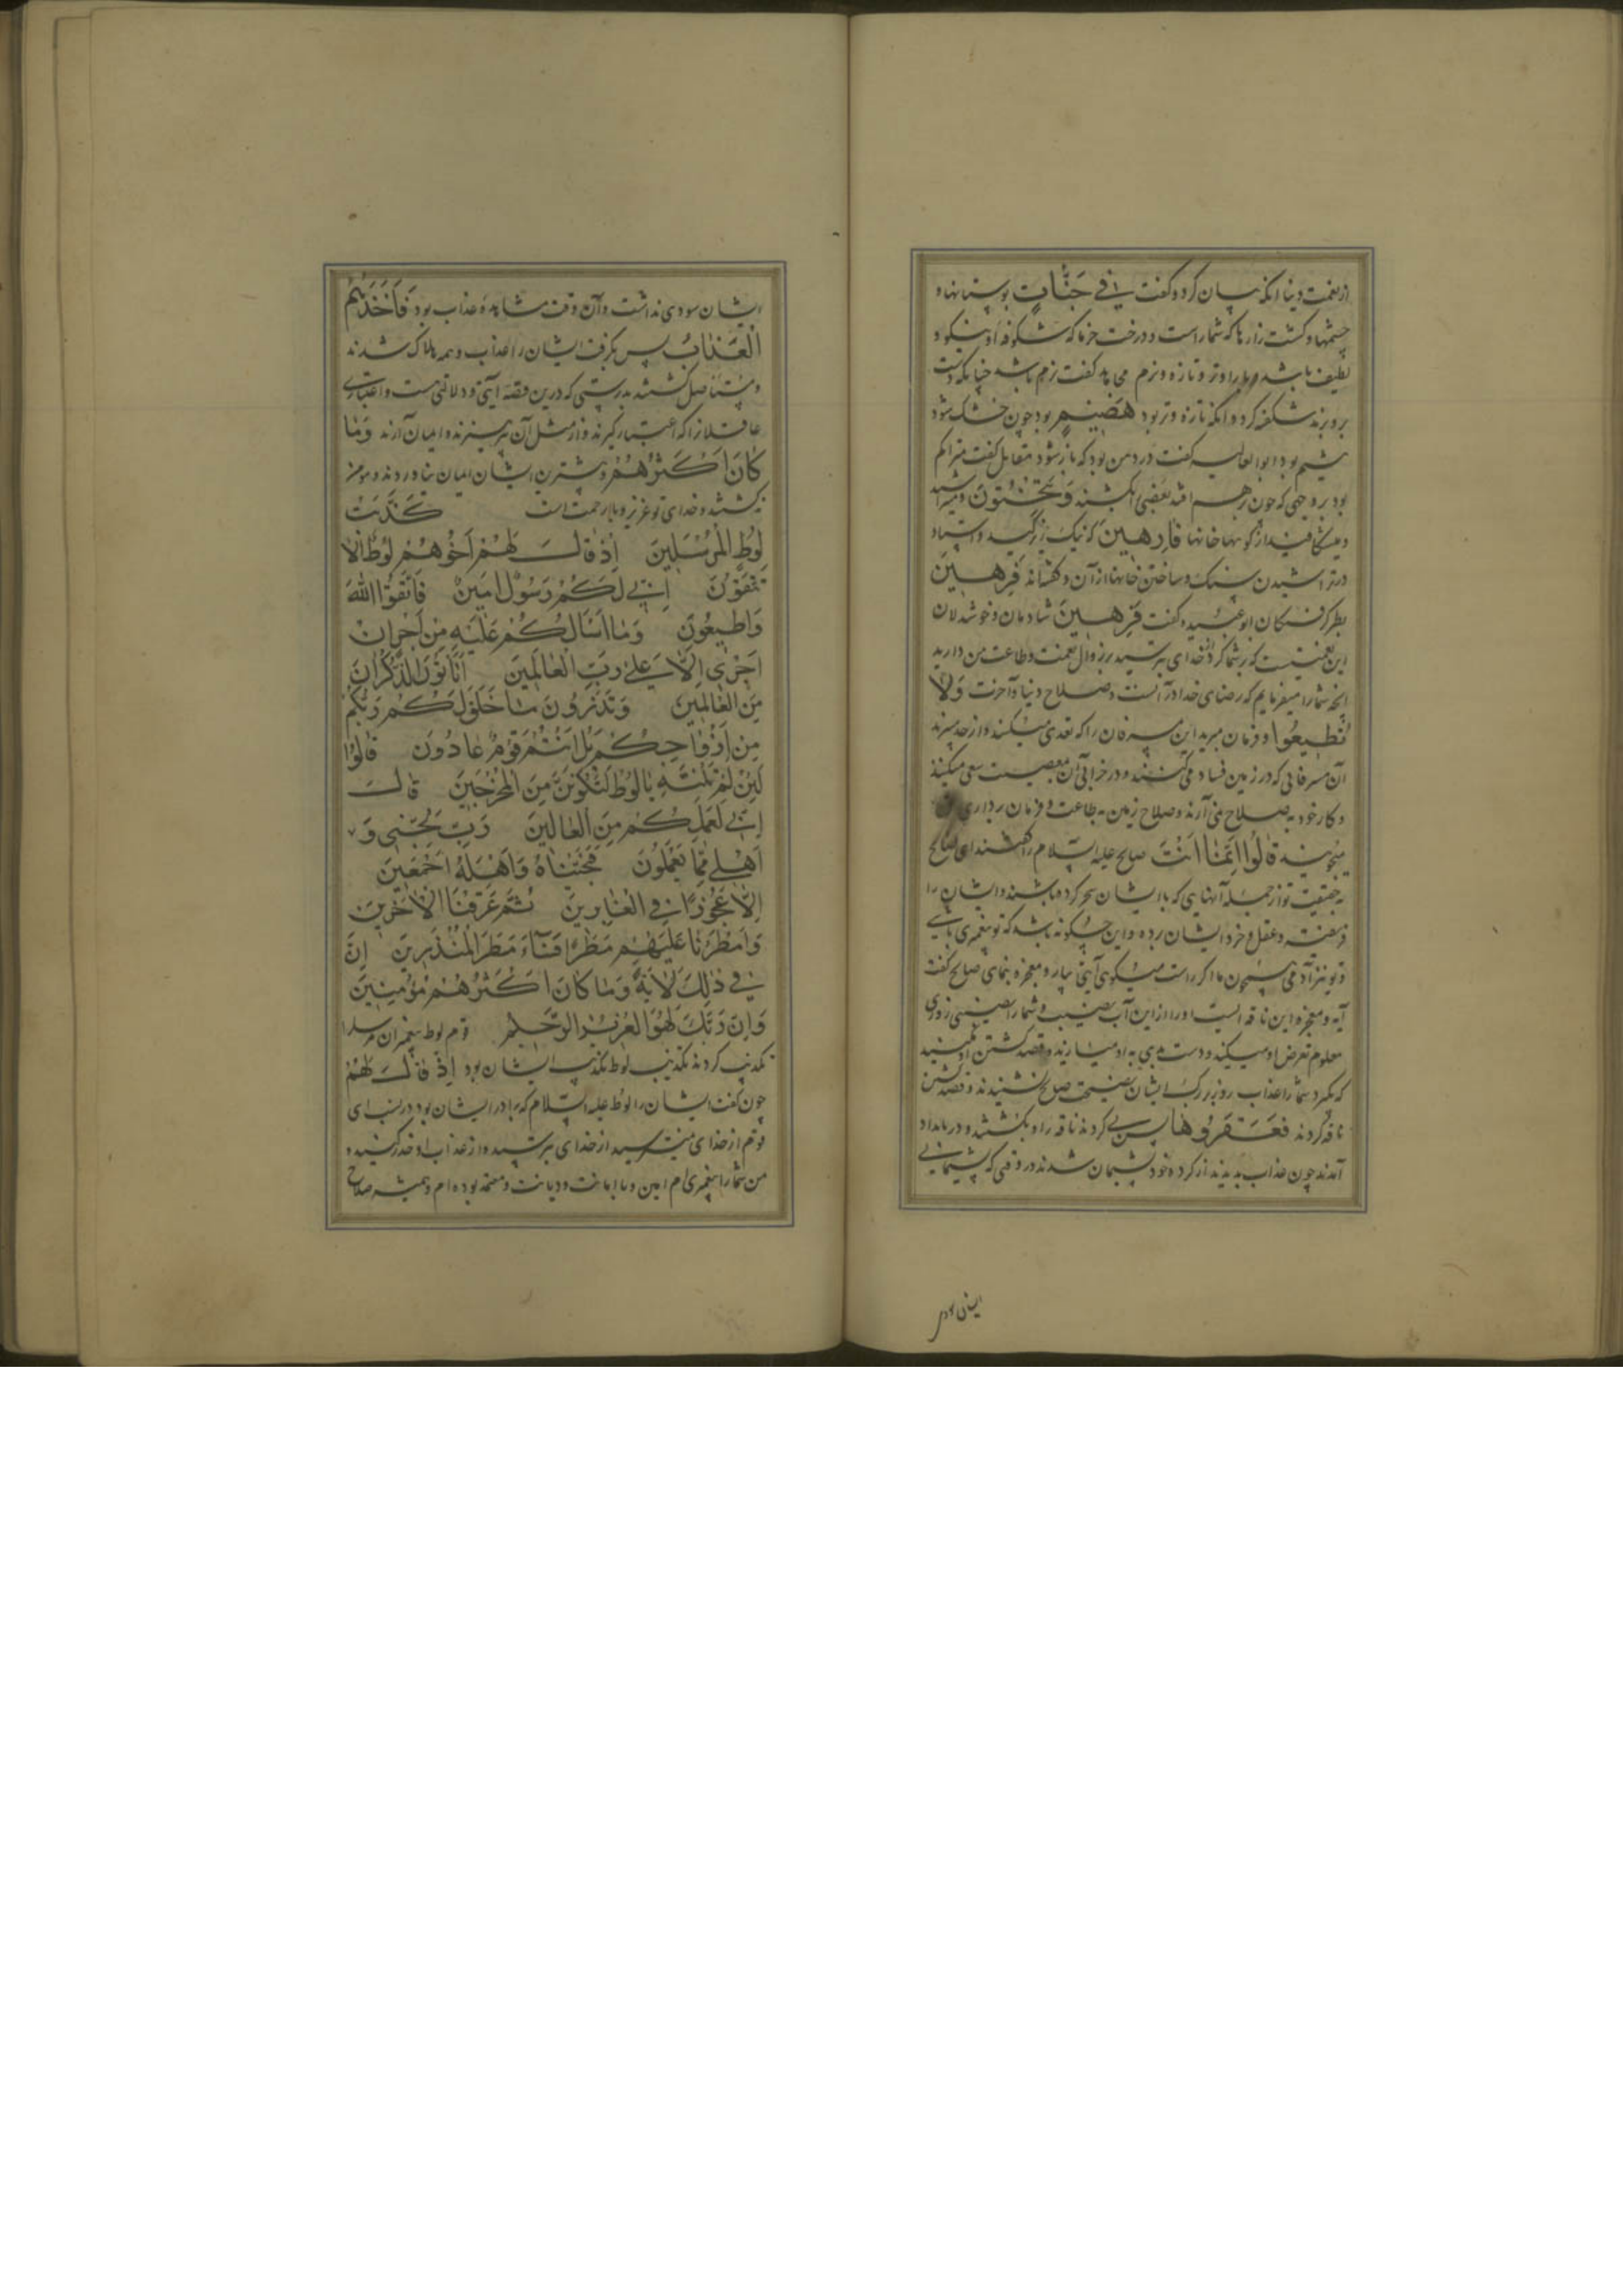 از نعمت دنیا آنکه بیان کرد و گفت فِي جَنَّاتٍ بوستانها و
چشمها و کشت زارها که شما راست و درخت خرما که شکوفه او نیکو و
لطیف باشد و تر و تازه و نرم گفت نرم باشد چنانکه دست
برو برند شکفته کردد و آنکه تازه و تر بود هَضِيمٍ بود چون خشک شود
هشیم بود ابو العالیه گفت در دهن بود که باز شود مقاتل گفت متراکم
بود بر وجهی که چون بر هم افتد بعضی بشکند وَتَنْحِتُونَ و میتراشید
و میشکافید از کوهها خانها فَارِهِينَ که نیک زیرکید و استاد
در تراشیدن سنک و ساختن خانها از آن و گفته‌اند فَرِهِينَ
بطر گرفتگان ابو عبیده گفت فَرِهِينَ شادمان و خوشدلان
این نعمتیست که بر شما کرد از خدای بترسید بر زوال نعمت و طاعت من دارید
آنچه شما را میفرمایم که رضای خدا در آنست و صلاح دنیا و آخرت وَلَا
تُطِيعُوا و فرمان مبرید این مسرفان را که تعدی میکنند و از حد میبرند
آن مسرفانی که در زمین فساد می کنند و در خرابی آن بمعصیت سعی میکنند
و کار خود به صلاح نمی آرند و صلاح زمین به طاعت و فرمان برداری
نمیجویند قَالُوا إِنَّمَا أَنْتَ صالح علیه السلام را گفتند ای صالح
به حقیقت تو از جمله آنهایی که با ایشان سحر کرده باشند و ایشان را
فریفته و عقل و خرد ایشان برده و این چگونه باشد که تو پیغمبری باشی
و تو نیز آدمی همچون ما اگر راست میگویی آیتی بیار و معجزه بنمای صالح گفت
آیه و معجزه این ناقه است او را از این آب نصیبیست و شما را نصیبی روزی
معلوم تعرض او میکنید و دست بدی به او میارید و قصد کشتن او مکنید
که بگیرد شما را عذاب روز بزرگ ایشان نصیحت صالح نشنیدند و قصد کشتن
ناقه کردند فَعَقَرُوهَا پس پی کردند ناقه را و بکشتند و در بامداد
آمدند چون عذاب بدیدند از کرده خود پشیمان شدند در وقتی که پشیمانی
ایشان سودی
ایشان سودی نداشت و آن وقت مشاهده عذاب بود فَأَخَذَهُمُ
الْعَذَابُ پس بگرفت ایشان را عذاب و همه هلاک شدند
و مستأصل گشتند بدرستی که درین قصه آیتی و دلالتی هست و اعتباری
عاقلان را که اعتبار گیرند و از مثل آن بپرهیزند و ایمان آرند وَمَا
كَانَ أَكْثَرُهُمْ و بیشترین ایشان ایمان نیاوردند و مؤمن
نه گشتند و خدای تو عزیز و با رحمت است كَذَّبَتْ
لُوطٍ الْمُرْسَلِينَ إِذْ قَالَ لَهُمْ أَخُوهُمْ لُوطٌ أَلَا
تَتَّقُونَ إِنِّي لَكُمْ رَسُولٌ أَمِينٌ فَاتَّقُوا اللَّهَ
وَأَطِيعُونِ وَمَا أَسْأَلُكُمْ عَلَيْهِ مِنْ أَجْرٍ إِنْ
أَجْرِيَ إِلَّا عَلَىٰ رَبِّ الْعَالَمِينَ أَتَأْتُونَ الذُّكْرَانَ
مِنَ الْعَالَمِينَ وَتَذَرُونَ مَا خَلَقَ لَكُمْ رَبُّكُمْ
مِنْ أَزْوَاجِكُمْ بَلْ أَنْتُمْ قَوْمٌ عَادُونَ قَالُوا
لَئِنْ لَمْ تَنْتَهِ يَا لُوطُ لَتَكُونَنَّ مِنَ الْمُخْرَجِينَ قَالَ
إِنِّي لِعَمَلِكُمْ مِنَ الْقَالِينَ رَبِّ نَجِّنِي وَ
أَهْلِي مِمَّا يَعْمَلُونَ فَنَجَّيْنَاهُ وَأَهْلَهُ أَجْمَعِينَ
إِلَّا عَجُوزًا فِي الْغَابِرِينَ ثُمَّ غَرَقْنَا الْآخَرِينَ
وَأَمْطَرْنَا عَلَيْهِمْ مَطَرًا فَسَاءَ مَطَرُ الْمُنْذَرِينَ إِنَّ
فِي ذَٰلِكَ لَآيَةً وَمَا كَانَ أَكْثَرُهُمْ مُؤْمِنِينَ
وَإِنَّ رَبَّكَ لَهُوَ الْعَزِيزُ الرَّحِيمُ قوم لوط پیغمبران مرسل را
تکذیب کردند تکذیب لوط تکذیب ایشان بود إِذْ قَالَ لَهُمْ
چون گفت ایشان را لوط علیه السلام که برادر ایشان بود در نسب ای
قوم از خدای می ترسید از خدای بترسید و از عذاب او حذر کنید و
من شما را پیغمبری ام امین و با امانت و دیانت و معتمد بوده ام و همیشه صلاح